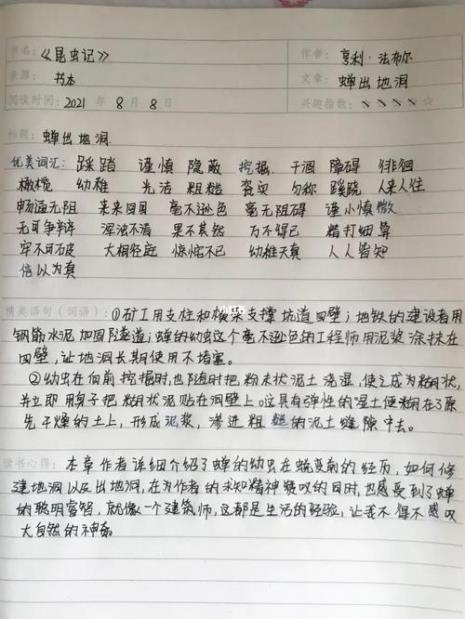 书名：《昆虫记》 作者：亨利·法布尔
来源：书本 文章：蝉出地洞
阅读时间：2021 年 8 月 8 日 兴趣指数：☆
标题：蝉出地洞
优美词汇：踩踏 谨慎 隐蔽 挖掘 干涸 障碍 徘徊
橄榄 幼稚 光洁 粗糙 匀称 蹊跷 人来人往
畅通无阻 来来回回 毫不逊色 毫无阻碍 谨小慎微
无可争辩 浑浊不清 果不其然 万不得已 精打细算
牢不可破 大相径庭 惊惶不已 幼稚天真 人人皆知
信以为真
精美语句（词语）：①矿工用支柱和横梁支撑坑道四壁；地铁的建设者用
钢筋水泥加固隧道；蝉的幼虫这个毫不逊色的工程师用泥浆涂抹在
四壁，让地洞长期使用不堵塞。
②幼虫在向前挖掘时，也随时把粉末状泥土浇湿，使之成为糊状，
并立即用身子把糊状泥贴在洞壁上。这具有弹性的湿土便糊在了原
先干燥的土上，形成泥浆，渗进粗糙的泥土缝隙中去。
读书心得：本章作者详细介绍了蝉的幼虫在蜕变前的经历，如何修
建地洞以及出地洞，在为作者的求知精神赞叹的同时，也感受到了蝉
的聪明睿智，就像一个建筑师，这都是生活的经验，让我不得不感叹
大自然的神奇。